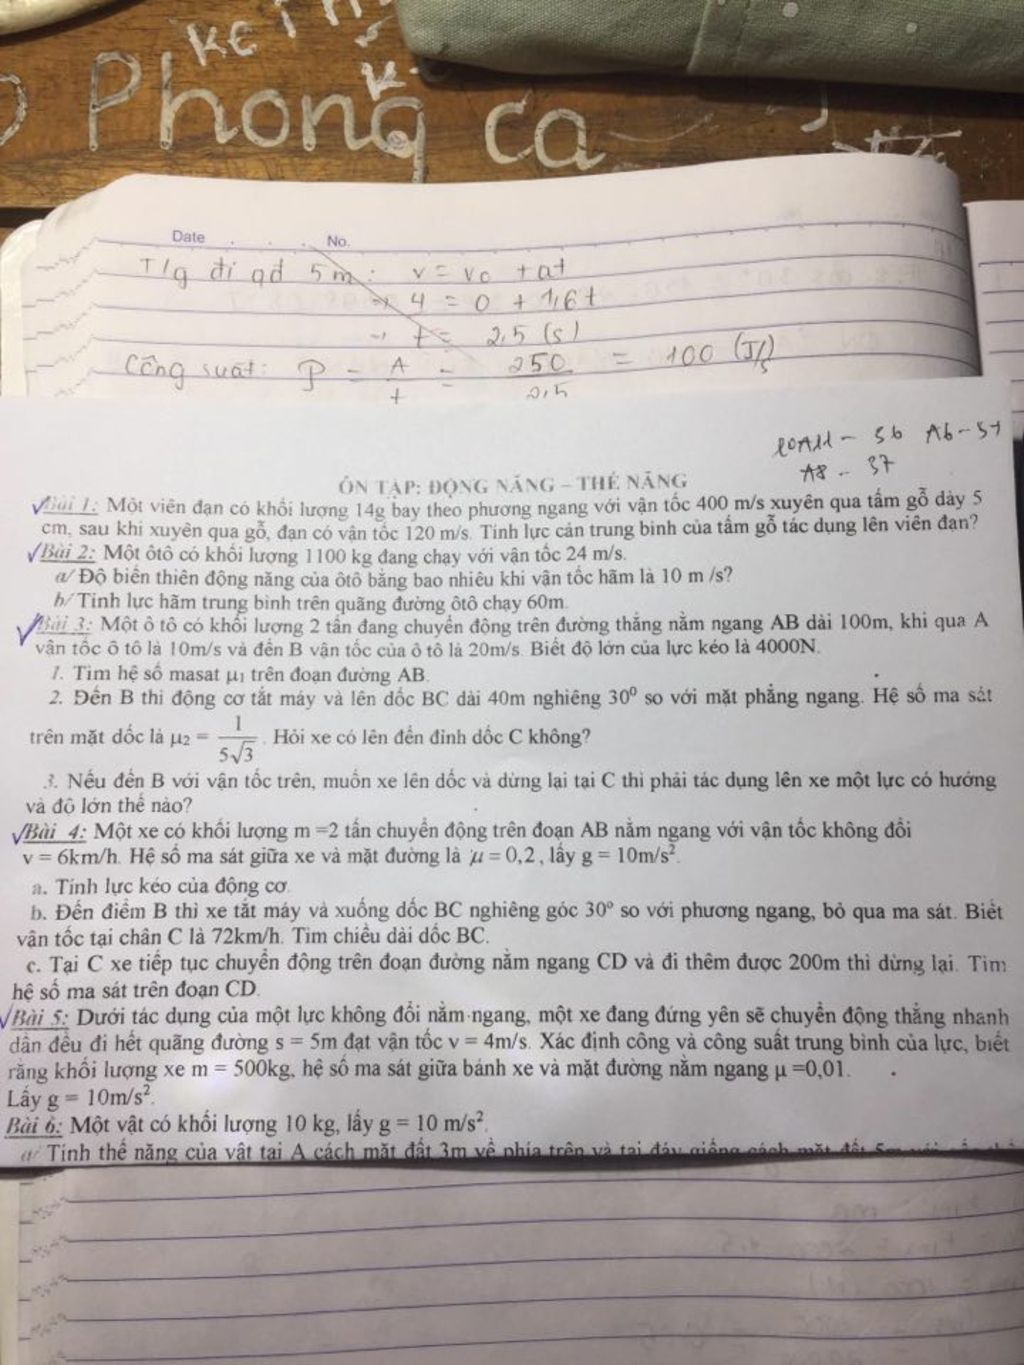 KE
Phong ca
Date No.
T/g đi qđ 5m: v = v₀ + at
→ 4 = 0 + 1,6t
→ t = 2,5 (s)
Công suất: P = A/t = 250/2,5 = 100 (J/s)
10A11 - 36 A6 - 37
A8 - 37
ÔN TẬP: ĐỘNG NĂNG – THẾ NĂNG
Bài 1: Một viên đạn có khối lượng 14g bay theo phương ngang với vận tốc 400 m/s xuyên qua tấm gỗ dày 5
cm, sau khi xuyên qua gỗ, đạn có vận tốc 120 m/s. Tính lực cản trung bình của tấm gỗ tác dụng lên viên đạn?
Bài 2: Một ôtô có khối lượng 1100 kg đang chạy với vận tốc 24 m/s.
a/ Độ biến thiên động năng của ôtô bằng bao nhiêu khi vận tốc hãm là 10 m /s?
b/ Tính lực hãm trung bình trên quãng đường ôtô chạy 60m.
Bài 3: Một ô tô có khối lượng 2 tấn đang chuyển động trên đường thẳng nằm ngang AB dài 100m, khi qua A
vận tốc ô tô là 10m/s và đến B vận tốc của ô tô là 20m/s. Biết độ lớn của lực kéo là 4000N.
1. Tìm hệ số masat μ₁ trên đoạn đường AB.
2. Đến B thì động cơ tắt máy và lên dốc BC dài 40m nghiêng 30⁰ so với mặt phẳng ngang. Hệ số ma sát
trên mặt dốc là μ₂ = 1/(5√3). Hỏi xe có lên đến đỉnh dốc C không?
3. Nếu đến B với vận tốc trên, muốn xe lên dốc và dừng lại tại C thì phải tác dụng lên xe một lực có hướng
và độ lớn thế nào?
Bài 4: Một xe có khối lượng m =2 tấn chuyển động trên đoạn AB nằm ngang với vận tốc không đổi
v = 6km/h. Hệ số ma sát giữa xe và mặt đường là μ = 0,2, lấy g = 10m/s².
a. Tính lực kéo của động cơ.
b. Đến điểm B thì xe tắt máy và xuống dốc BC nghiêng góc 30º so với phương ngang, bỏ qua ma sát. Biết
vận tốc tại chân C là 72km/h. Tìm chiều dài dốc BC.
c. Tại C xe tiếp tục chuyển động trên đoạn đường nằm ngang CD và đi thêm được 200m thì dừng lại. Tìm
hệ số ma sát trên đoạn CD.
Bài 5: Dưới tác dụng của một lực không đổi nằm ngang, một xe đang đứng yên sẽ chuyển động thẳng nhanh
dần đều đi hết quãng đường s = 5m đạt vận tốc v = 4m/s. Xác định công và công suất trung bình của lực, biết
rằng khối lượng xe m = 500kg, hệ số ma sát giữa bánh xe và mặt đường nằm ngang μ =0,01.
Lấy g = 10m/s².
Bài 6: Một vật có khối lượng 10 kg, lấy g = 10 m/s².
a/ Tính thế năng của vật tại A cách mặt đất 3m về phía trên và tại đáy giếng cách mặt đất 5m